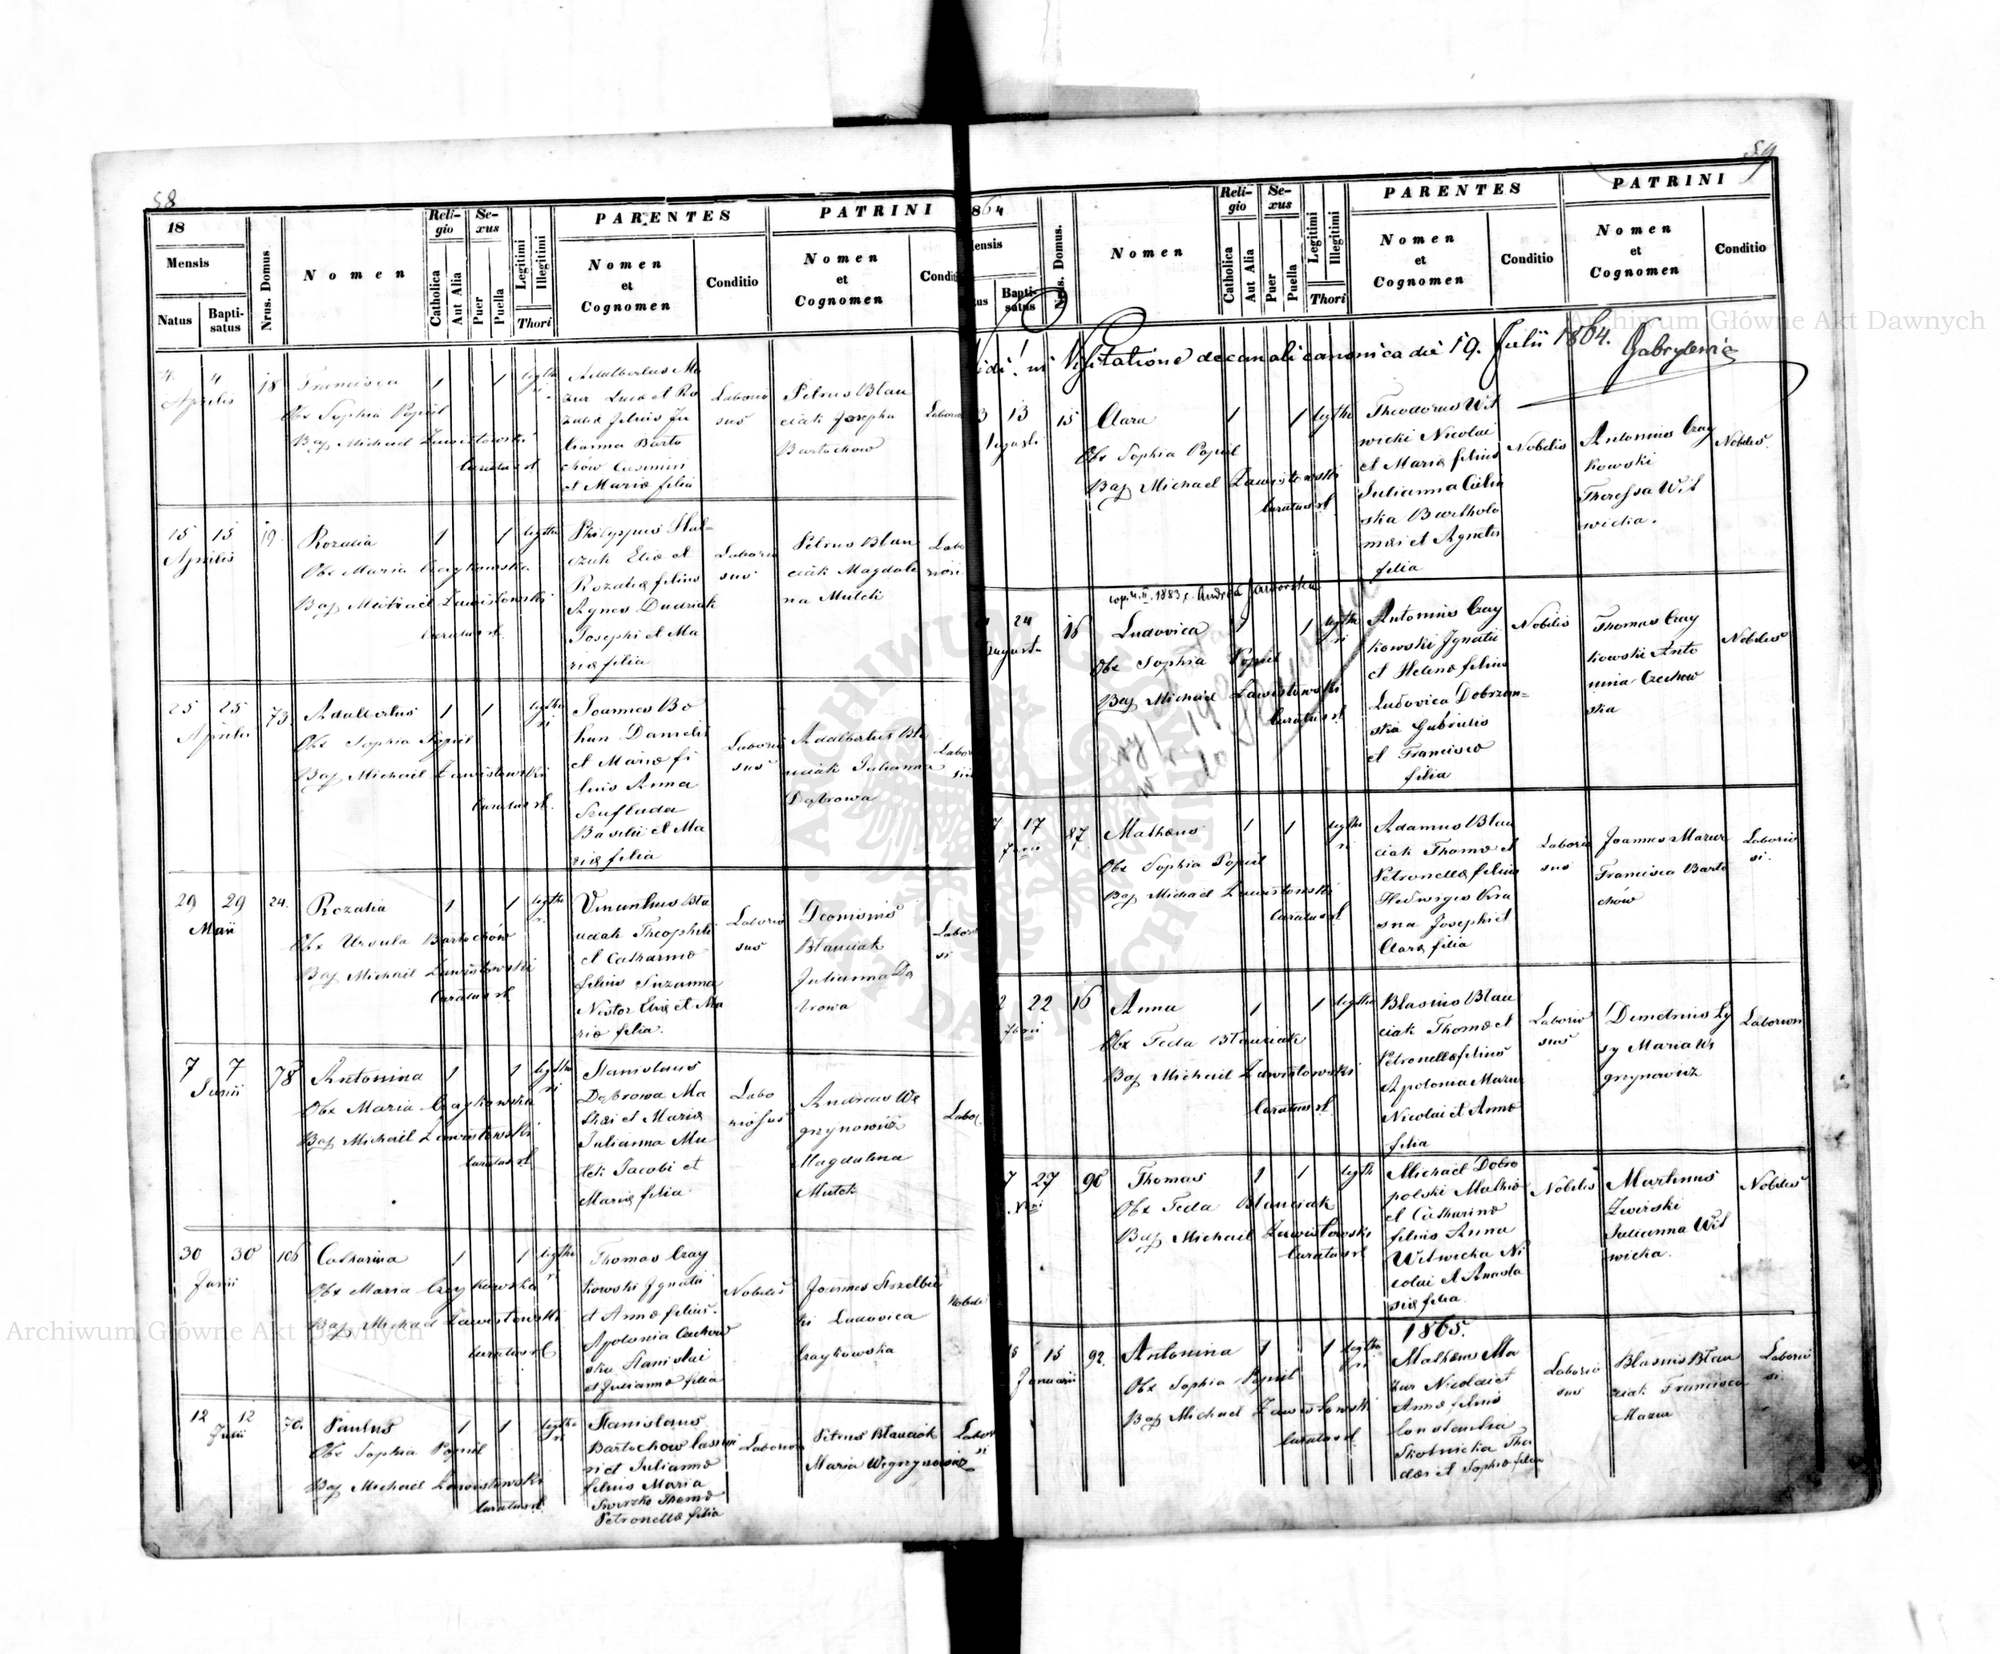 58
18
Mensis
Natus
Bapti-
satus
Nrus. Domus
Nomen
Reli-
gio
Catholica
Aut Alia
Se-
xus
Puer
Puella
Legitimi
Illegitimi
Thori
PARENTES
Nomen
et
Cognomen
Conditio
PATRINI
Nomen
et
Cognomen
4 Aprilis
18
Francisca
1
1
Obx Sophia Popiel
Bap Michael Zawistowski
Curatus rl
Adalbertus Ma
zur Luca et Ro
zalia filius Ju
lianna Barto
chow Casimiri
et Mariæ filia
Laborio
sus
Petrus Blau
ciak Josepha
Bartochow
15 15
Aprilis
19
Rozalia
1
1
Obx Maria Czaykowska
Bap Michael Zawistowski
Curatus rl
Philippus
Eliæ et
Rozaliæ filius
Agnes Dudziak
Josephi et Ma
riæ filia
Laborio
sus
Petrus Blau
ciak Magdale
na Mulek
Labo
riosi
25 25
Aprilis
73
Adalbertus
1
1
Obx Sophia Popiel
Bap Michael Zawistowski
Curatus rl
Joannes Bo
hun Danielis
et Mariæ fi
lius Anna
Szufluda
Basilii et Ma
riæ filia
Laborio
sus
Adalbertus Bla
uciak Julianna
Dąbrowa
29 29
Maii
24
Rozalia
1
1
Obx Ursula Bartochów
Bap Michael Zawistowski
Curatus rl
Vincentius Bla
uciak Theophili
et Catharinæ
filius Suzanna
Nestor Eliæ et Ma
riæ filia
Laborio
sus
Dionisius
Blauciak
Julianna Dą
browa
Laborio
si
7 7
Junii
78
Antonina
1
1
Obx Maria Czaykowska
Bap Michael Zawistowski
Curatus rl
Stanislaus
Dąbrowa Ma
thæi et Mariæ
Julianna Mu
lek Jacobi et
Mariæ filia
Labo
riosus
Andreas Wę
grzynowicz
Magdalena
Mulek
30 30
Junii
106
Catharina
1
1
Obx Maria Czaykowska
Bap Michael Zawistowski
Curatus rl
Thomas Czay
kowski Ignatii
et Annæ filius
Apolonia Czechow
ska Stanislai
et Juliannæ filia
Nobilis
Joannes Strzelbic
ki Ludovica
Czaykowska
12 12
Julii
70
Paulus
1
1
Obx Sophia Popiel
Bap Michael Zawistowski
Curatus rl
Stanislaus
Bartochow Casimi
ri et Juliannæ
filius Maria
Swirzko Thomæ
Petronellæ filia
Petrus Blauciak
Maria Węgrzynowicz
59
1864
Bapti-
satus
Nrus. Domus.
Nomen
Reli-
gio
Catholica
Aut Alia
Se-
xus
Puer
Puella
Legitimi
Illegitimi
Thori
PARENTES
Nomen
et
Cognomen
Conditio
PATRINI
Nomen
et
Cognomen
Conditio
Vidi! in Visitatione decanali canonica die 19. Julii 1864. Gabrylewicz
13
15
Clara
1
1
Obx Sophia Popiel
Bap Michael Zawistowski
Curatus rl
Theodorus Wit
wicki Nicolai
et Mariæ filius
Julianna
Bartholo
mæi et Agnetis
filia
Nobilis
Antonius Czay
kowski
Theressa Wit
wicka.
Nobiles
cop. 4. II. 1883 c. Andrea Jaworski
24
Augusti
16
Ludovica
1
1
Obx Sophia Popiel
Bap Michael Zawistowski
Curatus rl
Antonius Czay
kowski Ignatii
et Helenæ filius
Ludovica Dobrzan-
ska Gabrielis
et Francisca
filia
Nobilis
Thomas Czay
kowski Anto
nina Czechow
ska
Nobiles
17
87
Matheus
1
1
Obx Sophia Popiel
Bap Michael Zawistowski
Curatus rl
Adamus Blau
ciak Thomæ et
Petronellæ filius
Hedwiges Kra
sna Josephi et
Claræ filia
Laborio
sus
Joannes Mazur
Francisca Barto
chów
Laborio
si
22
16
Anna
1
1
Obx Teda Blauciak
Bap Michael Zawistowski
Curatus rl
Blasius Blau
ciak Thomæ et
Petronellæ filius
Apolonia Mazur
Nicolai et Annæ
filia
Laborio
sus
Demetrius Ły
sy Maria Wę
grzynowicz
27
90
Thomas
1
1
Obx Teda Blauciak
Bap Michael Zawistowski
Curatus rl
Michael Dobro
polski Mathiæ
et Catharinæ
filius Anna
Witwicka Ni
colai et Anasta
siæ filia
Nobilis
Martinus
Zwirski
Julianna Wit
wicka.
Nobiles
1865.
15
Januarii
92
Antonina
1
1
Obx Sophia Popiel
Bap Michael Zawistowski
Curatus rl
Matheus Ma
zur Nicolai et
Annæ filius
Constantia
Skotnicka Tha
dæi et Sophiæ filia
Laborio
sus
Blasius Blau
ciak Francisca
Mazur
Laborio
si
Archiwum Główne Akt Dawnych
Archiwum Główne Akt Dawnych
ARCHIWUM GŁÓWNE AKT DAWNYCH